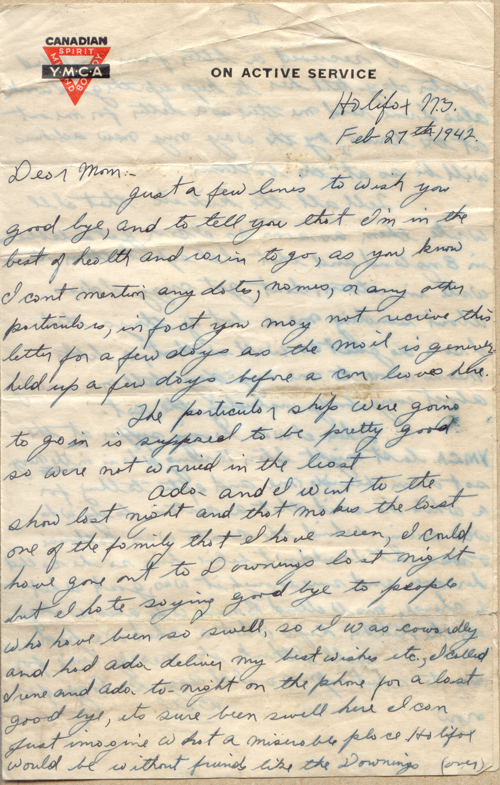 CANADIAN
SPIRIT
MIND AND BODY
Y·M·C·A
ON ACTIVE SERVICE
Halifax N.S.
Feb 27th/1942.
Dear Mom:-
Just a few lines to wish you
good bye, and to tell you that I'm in the
best of health and rarin to go, as you know
I cant mention any dates, names, or any other
particulars, in fact you may not recieve this
letter for a few days as the mail is generaly
held up a few days before a con leaves here.
The particular ship were going
to go in is supposed to be pretty good
so were not worried in the least
Ada and I went to the
show last night and that makes the last
one of the family that I have seen, I could
have gone out to Downings last night
but I hate saying good bye to people
who have been so swell, so I was cowardly
and had Ada deliver my best wishes etc, I called
Irene and Ada to-night on the phone for a last
good bye, its sure been swell here I can
just imagine what a miserable place Halifax
would be without friends like the Downings (over)